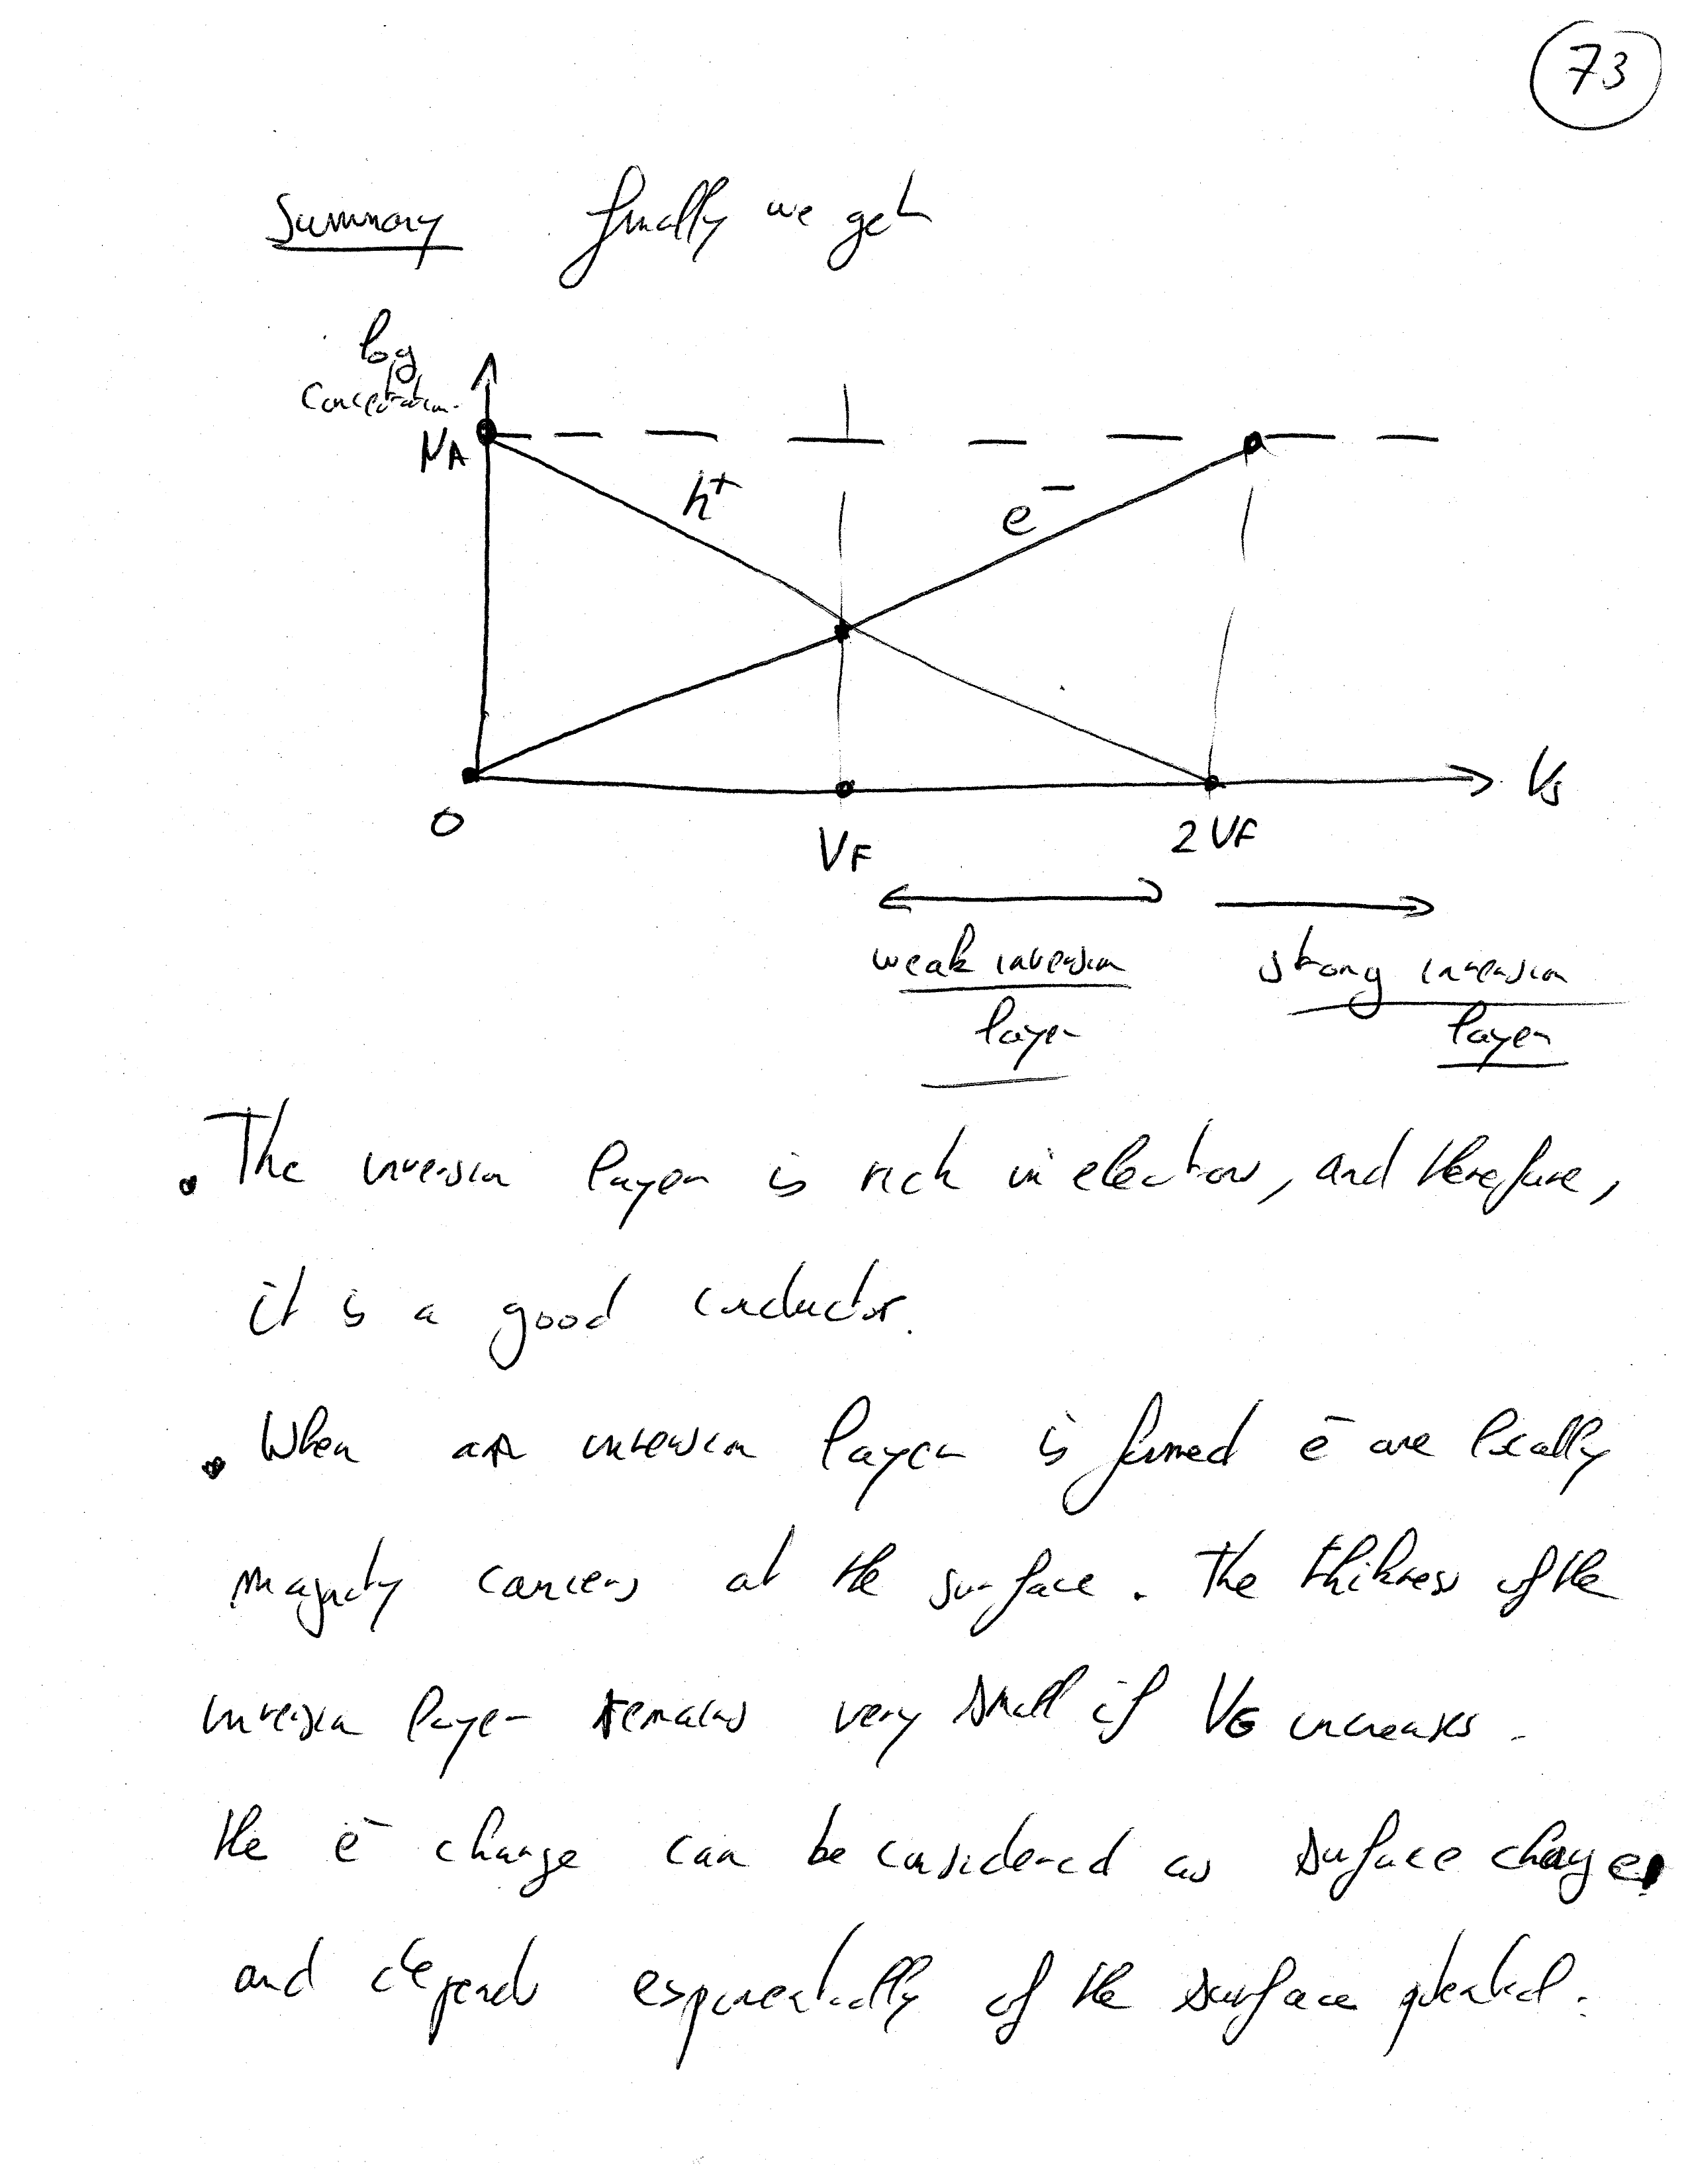 73
Summary finally we get
log
Concentration.
NA
h+
e-
0
VF
2VF
Vs
weak inversion
layer
strong inversion
layer
. The inversion layer is rich in electrons, and therefore,
it is a good conductor.
. When an inversion layer is formed e- are locally
majority carriers at the surface. The thikness of the
inversion layer remains very small if VG increases.
the e- charge can be considered as surface charge,
and depends exponentially of the surface potential.